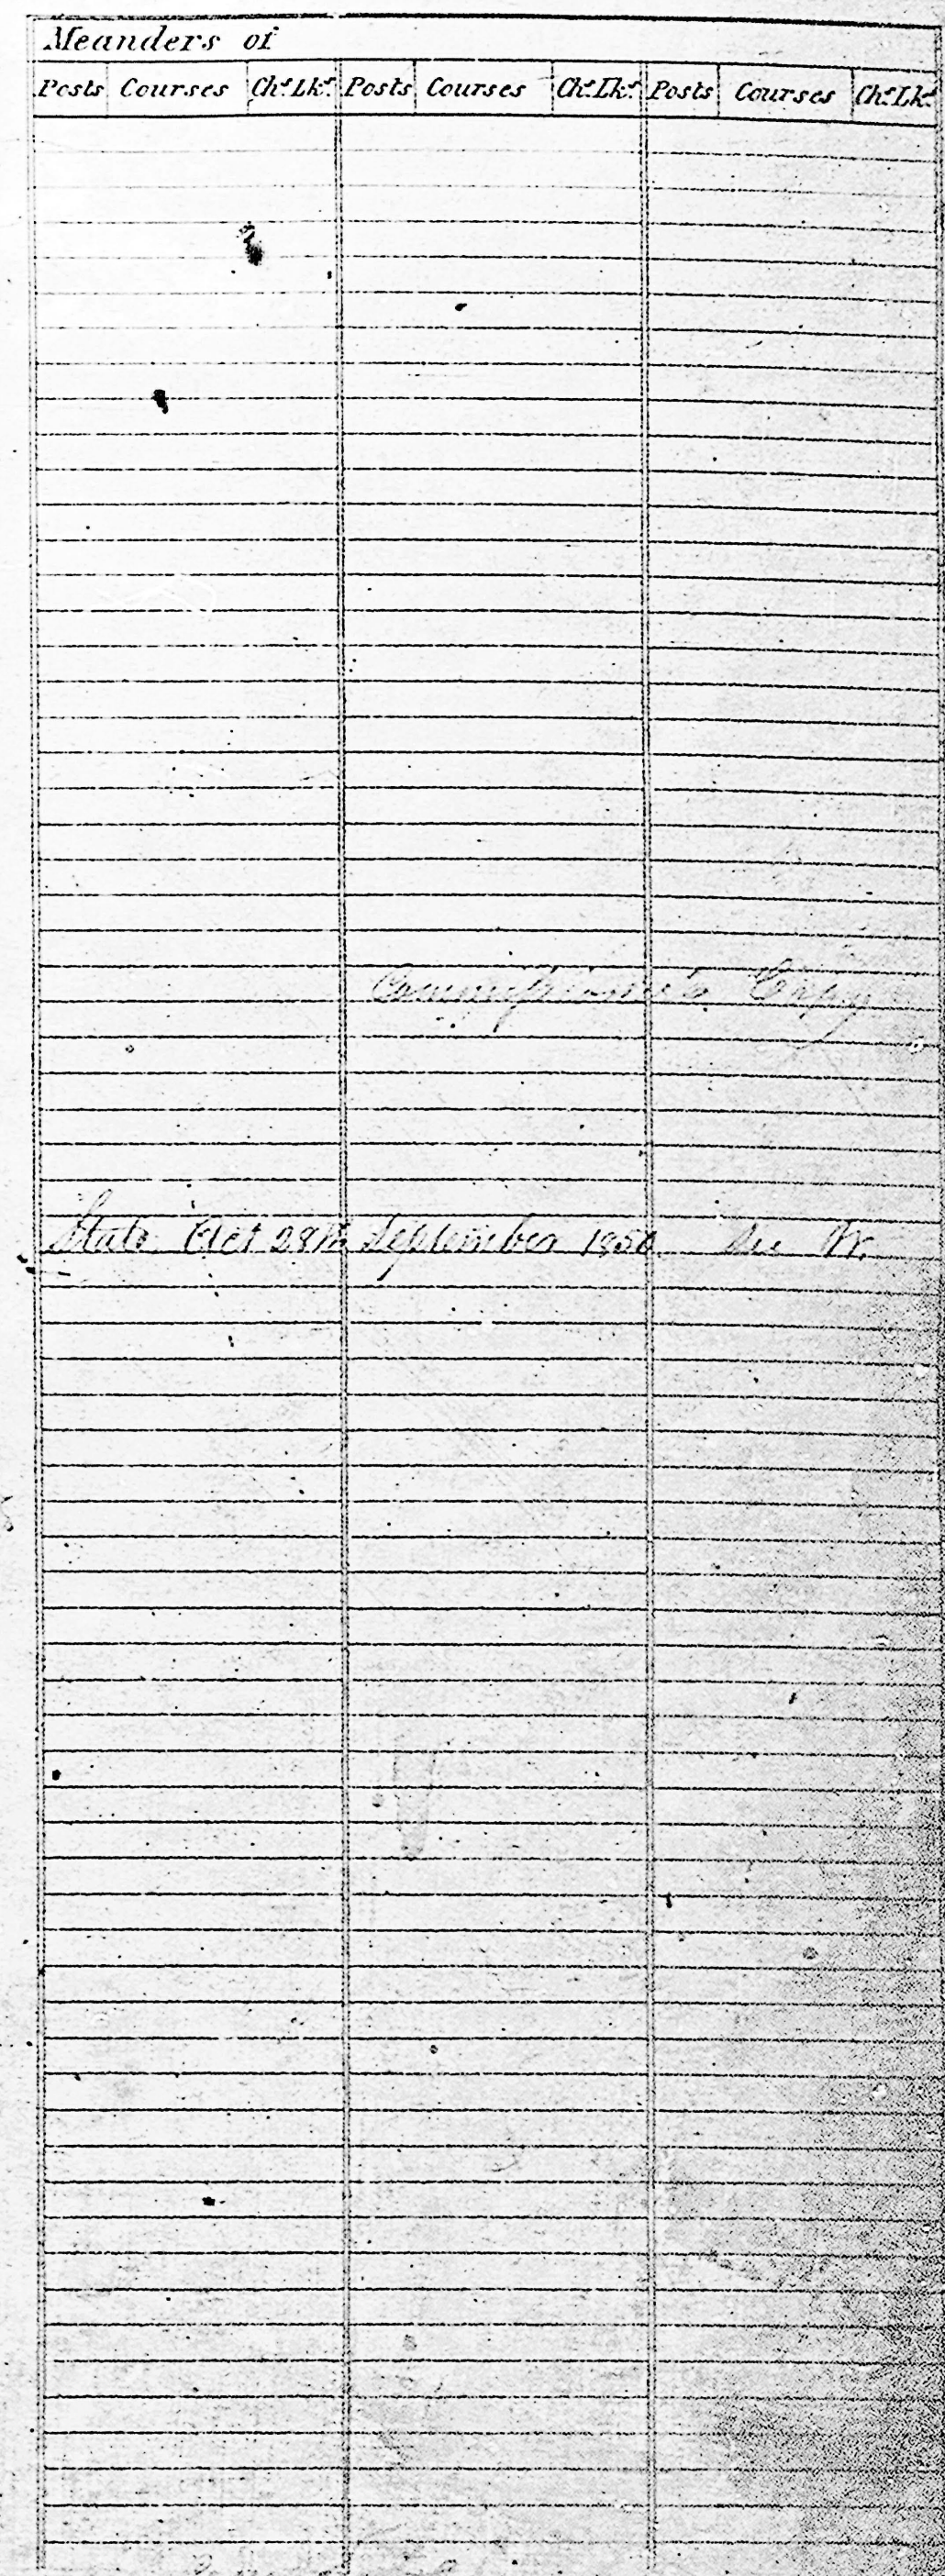 Meanders of
Posts Courses Chs. Lks. Posts Courses Chs. Lks. Posts Courses Chs. Lks.
Commissioner's Copy
State Act 28th September 1850.